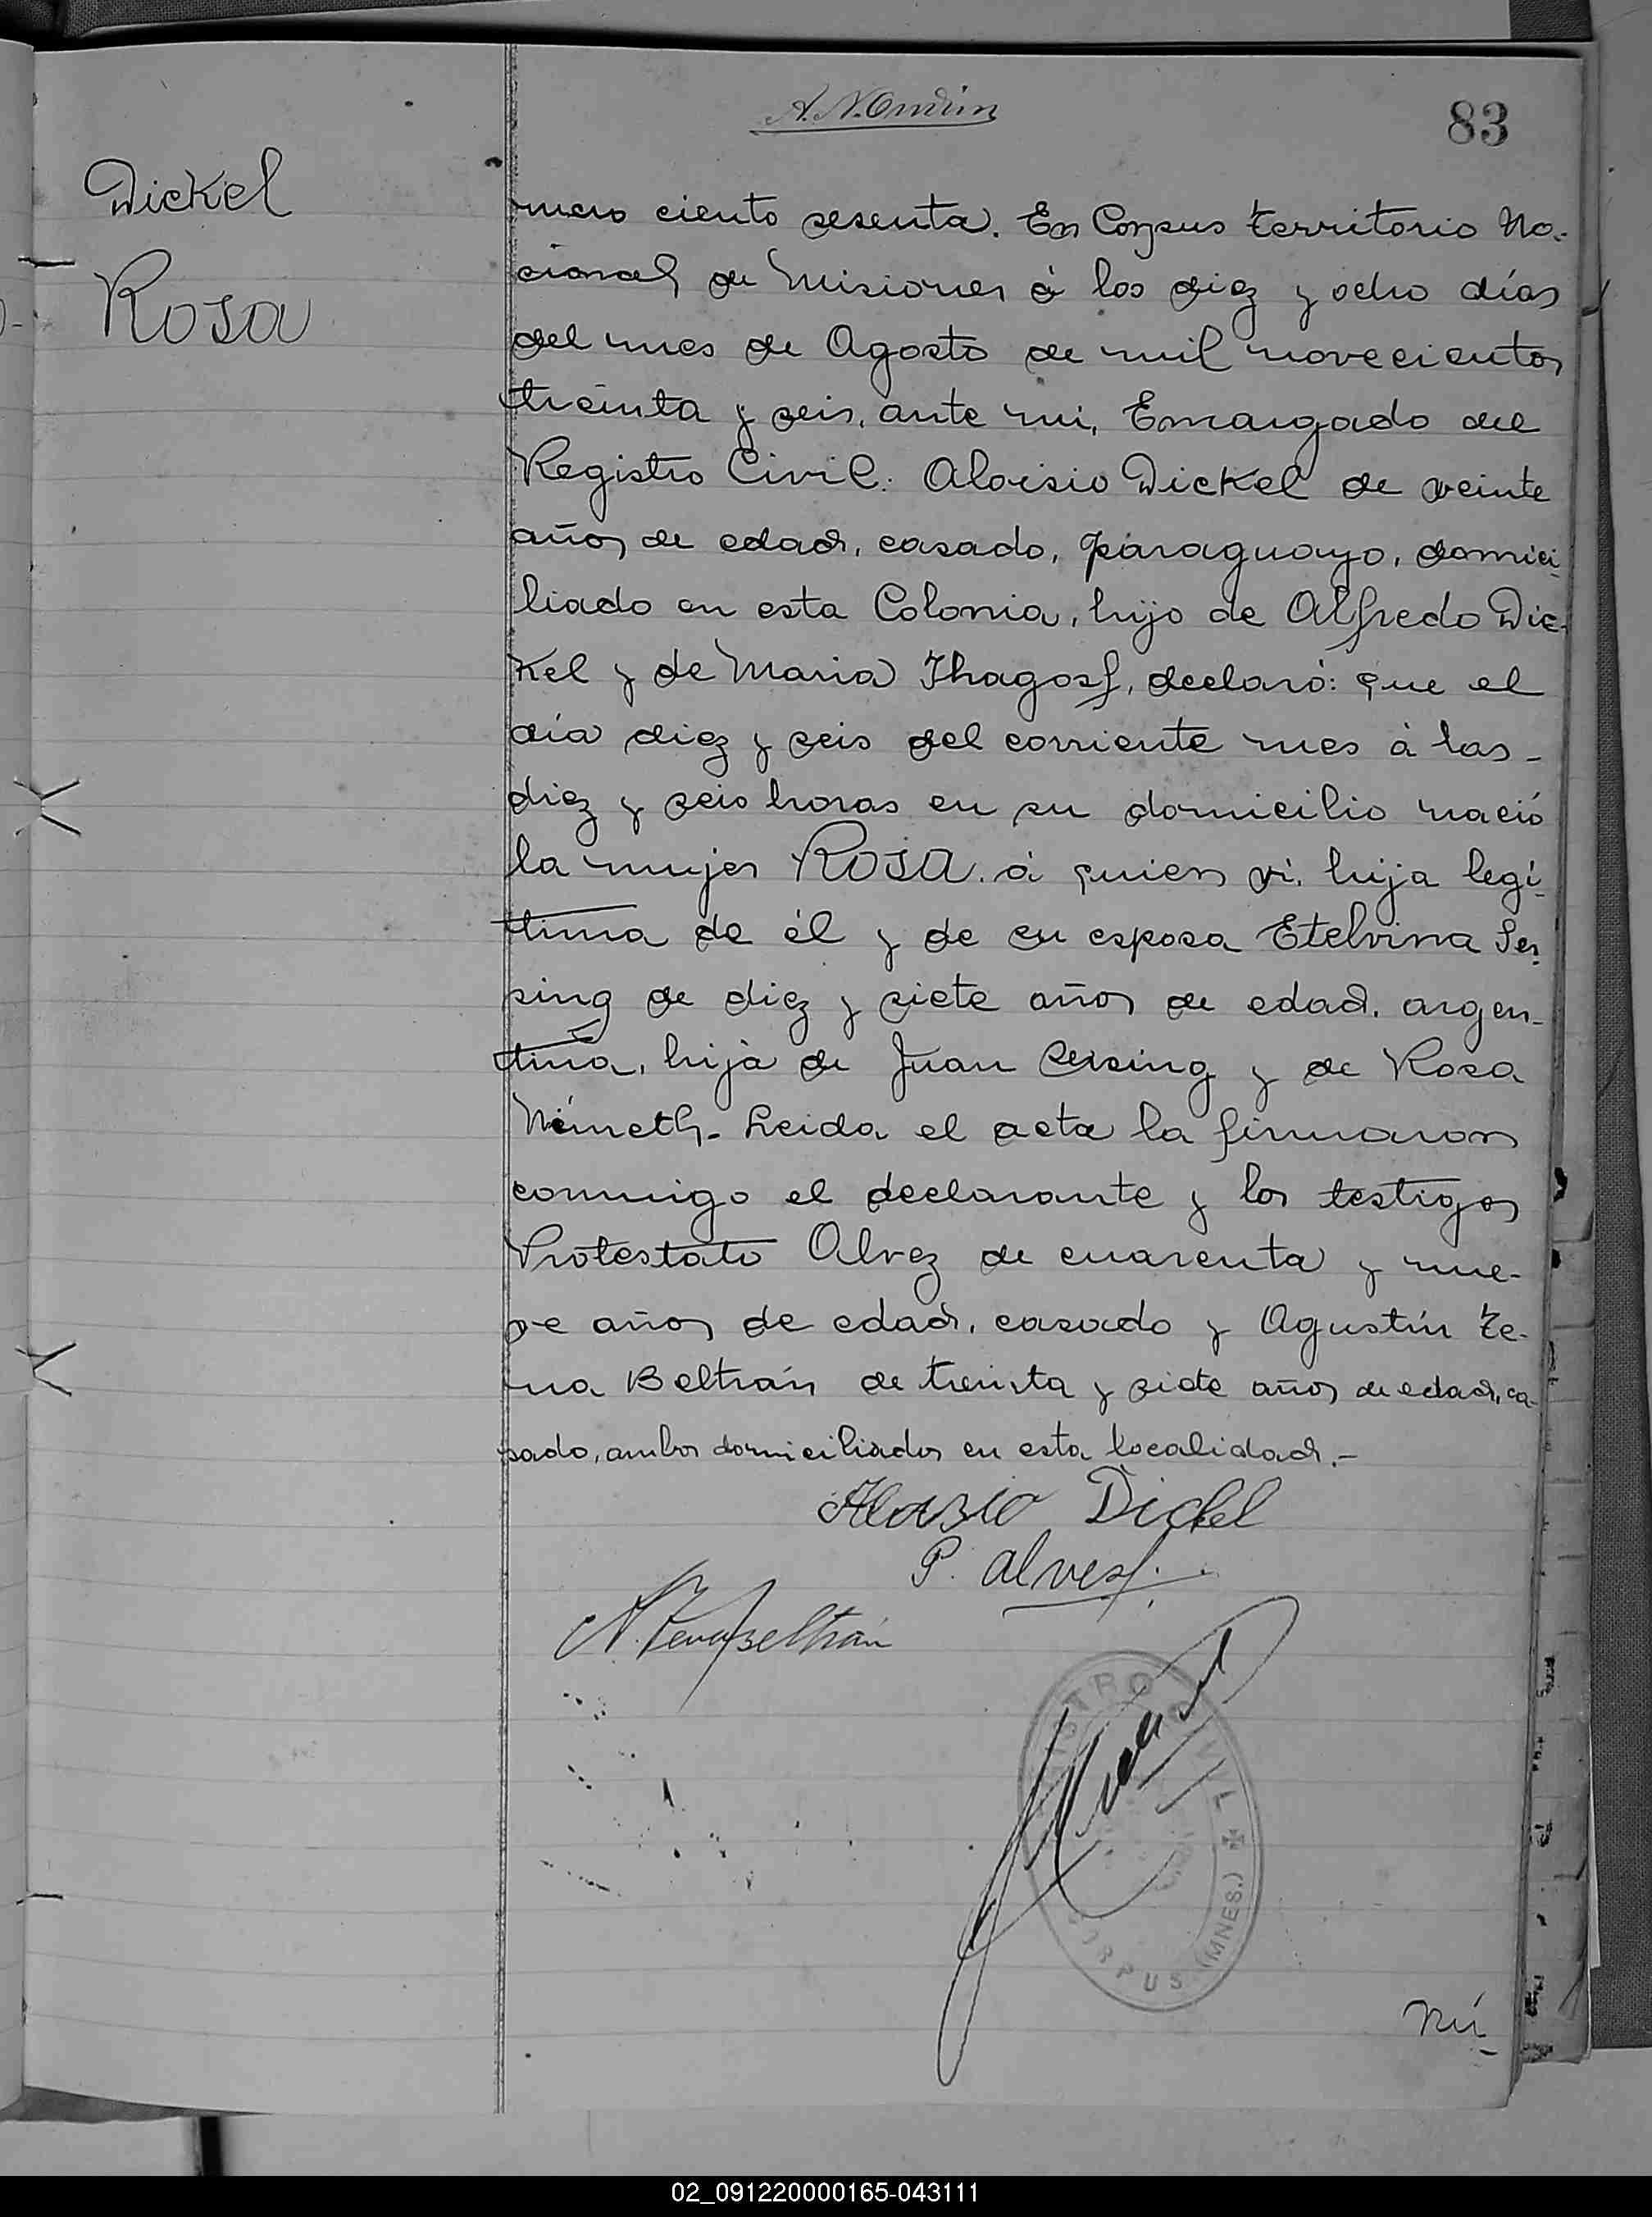 83
Dickel
Rosa
mero ciento sesenta. En Corpus territorio Na-
cional de Misiones á los diez y ocho días
del mes de Agosto de mil novecientos
treinta y seis, ante mi, Encargado del
Registro Civil: Aloisio Dickel de veinte
años de edad, casado, paraguayo, domici-
liado en esta Colonia, hijo de Alfredo Dic-
kel y de Maria declaró: que el
día diez y seis del corriente mes á las-
diez y seis horas en su domicilio nació
la mujer ROSA. á quien vi, hija legí-
tima de él y de su esposa Etelvina Ser-
sing de diez y siete años de edad, argen-
tina, hija de Juan Sersing y de Rosa
Németh.- Leida el acta la firmaron
conmigo el declarante y los testigos
Protestato Alvez de cuarenta y nue-
ve años de edad, casado y Agustín Te-
na Beltrán de treinta y siete años de edad, ca-
sado, ambos domiciliados en esta localidad.-
Aloisio Dickel
P. Alves
A. Tena Beltrán
REGISTRO CIVIL
CORPUS (MNES.)
Nú-
02_091220000165-043111